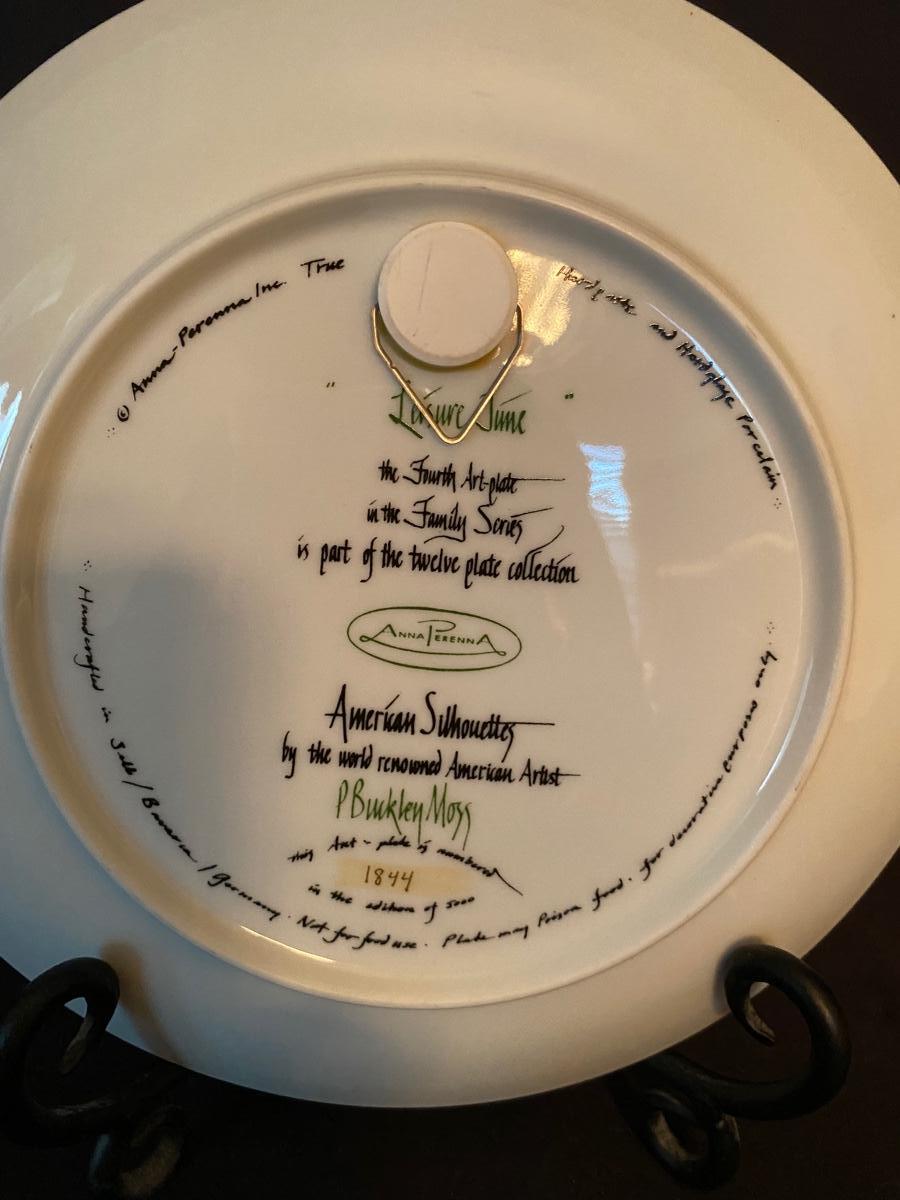 © Anna-Perenna Inc. True
and Handglaze Porcelain
"Leisure Time"
the Fourth Art-plate
in the Family Series
is part of the twelve plate collection
ANNA PERENNA
American Silhouettes
by the world renowned American Artist
P Buckley Moss
this Art-plate is numbered
1844
in the edition of 5000
Handcrafted in Selb/Bavaria/Germany. Not for food use. Plate may Poison food. for decorative purposes only.